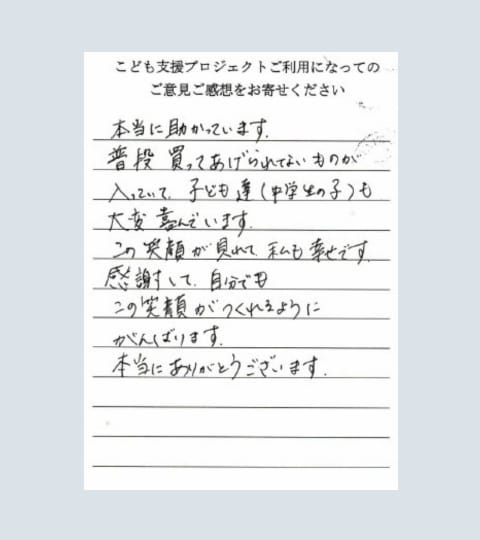 こども支援プロジェクトご利用になっての
ご意見ご感想をお寄せください
本当に助かっています.
普段 買ってあげられてないものが
入っていて、子ども達(中学生の子)も
大変 喜んでいます.
この 笑顔が見れて、私も幸せです.
感謝して、自分でも
この笑顔がつくれるように
がんばります.
本当にありがとうございます.